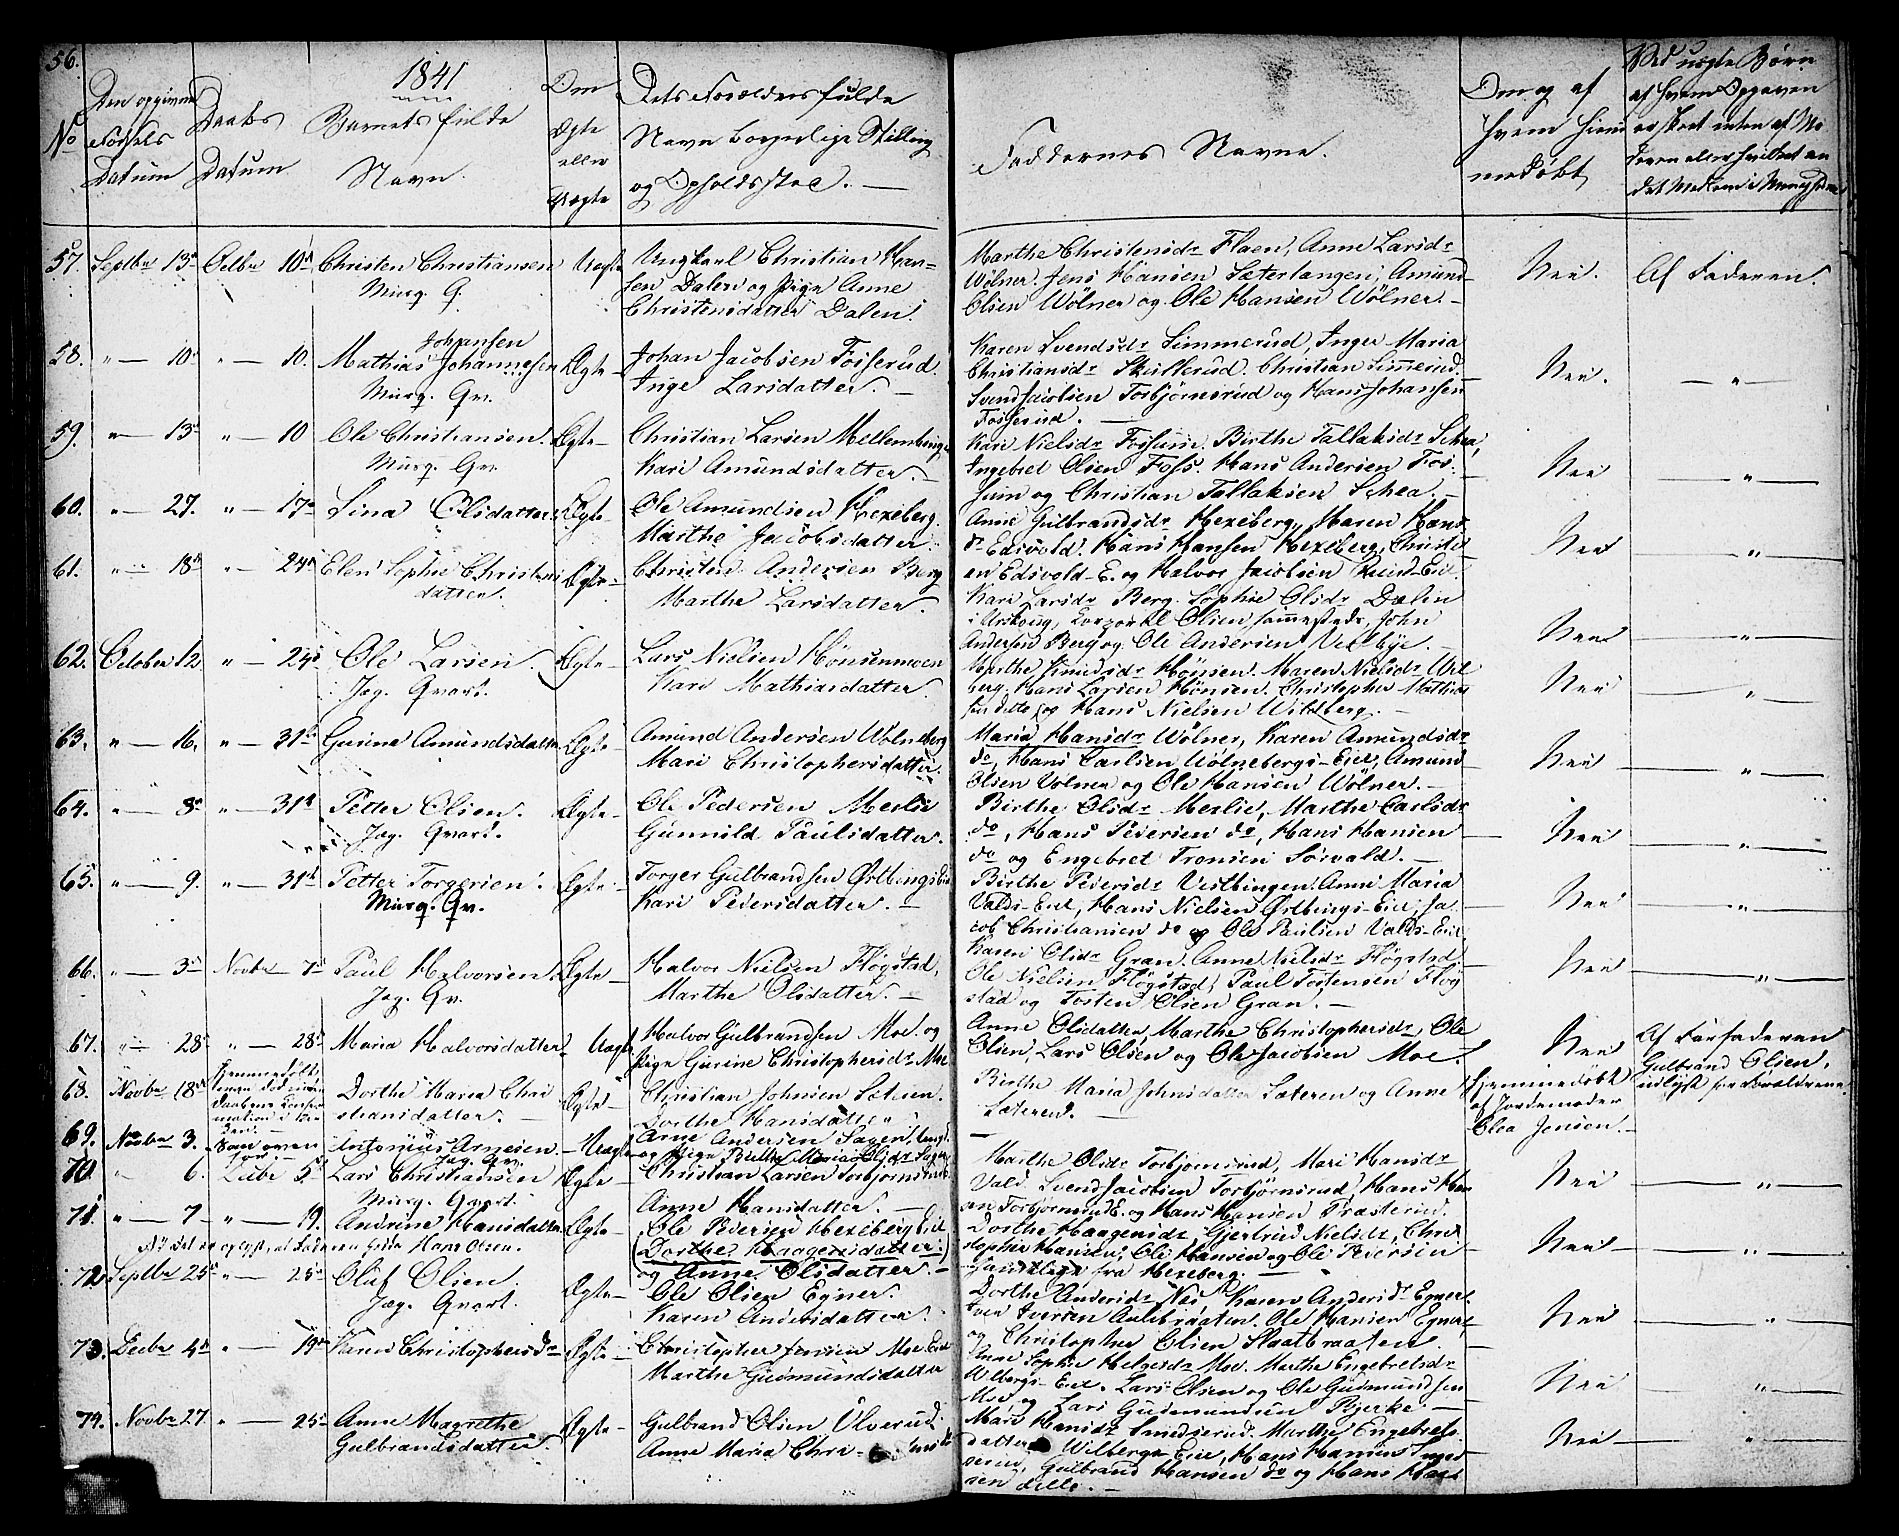 56.
1841
No
Den opgivne Fødsels Datum
Daabs Datum
Barnets fulde Navn.
Om Ægte eller Uægte
Dets Forældres fulde Navn borgerlige Stilling og Opholdssted. —
Faddernes Navne.
Om og af hvem hjemmedøbt
Ved uægte Børn af hvem Opgaven er skeet enten af Moderen eller hvilket andet Medium i Menigheden
57. Septbr 13de Octbr 10de Christen Christiansen Uægte Ungkarl Christian Han-
sen Dalen og Pige Anne
Christensdatter Dalen.
Murq. Q.
Marthe Christensdr Flaen, Anne Larsdr
Wölner. Jens Hansen Sæterlangen, Amund
Olsen Wölner og Ole Hansen Wölner. —
Nei. Af Faderen.
58. " — 10de " — 10. Johansen
Mathias Johannesen Ægte — Johan Jacobsen Fosserud.
Murq. Qv. Inge Larsdatter. —
Karen Svendsdr Simmerud, Inger Maria
Christiansdr Skullerud. Christian Simerud.
Svend Jacobsen Torbjørnsrud og Hans Johansen
Fosserud.
Nei. — " —
59. " — 13de " — 10 Ole Christiansen. Ægte — Christian Larsen Mellembinge
Murq. Qv. Kari Amundsdatter. —
Kari Nielsdr Fossum, Birthe Tallaksdr Schea,
Ingebret Olsen Foss. Hans Andersen Fos-
sum og Christian Tallaksen Schea. —
Nei — " —
60. " — 27. " — 17de Lina Olsdatter. Ægte — Ole Amundsen Hexeberg.
Marthe Jacobsdatter.
Anne Gulbrandsdr Hexeberg, Maren Hans-
dr Edsvold. Hans Hansen Hexeberg, Christi-
an Edsvold-E. og Halvor Jacobsen Eie.
Nei "
61. " — 18de " — 24de Elen Sophie Christens Ægte — Christen Andersen Berg
datter. Marthe Larsdatter.
Kari Larsdr Berg. Sophie Olsdr Dælin
Olsen sammesteds, John
Andersen Berg og Ole Andersen Velbye. —
Nei — " —
62. October 12 " — 24de Ole Larsen. Ægte — Lars Nielsen Hönsenmoen
Jag. Qvart. Kari Mathiasdatter.
Marthe Hönsen. Maren Nielsdr Wil-
berg. Hans Larsen Hönsen. Christopher Mathia-
sen ditto og Hans Nielsen Wildberg. —
Nei "
63. " — 16. " — 31te Gurine Amundsdatter Ægte — Amund Andersen Wölneberg
Mari Christophersdatter.
Maria Hansdr Wölner, Karen Amundsdr
do, Hans Carlsen Wölnebergs-Eiet, Amund
Olsen Volner og Ole Hansen Wölner. —
Nei — " —
64. " — 8de " — 31te Petter Olsen. Ægte — Ole Pedersen Meslie
Jag. Qvart. Gunnild Paulsdatter.
Birthe Olsdr Meslie, Marthe Carlsdr
do, Hans Pedersen do, Hans Hansen
do og Engebret Tronsen Sörvald. —
Nei — " —
65. " — 9. " — 31te Petter Torgersen. Ægte — Torger Gulbrandsen Østbings Eie
Murq. Qv. Kari Pedersdatter. —
Birthe Pedersdr Vestbingen. Anne Maria
Valds-Eiet, Hans Nielsen Østbings-Eiet, Ja-
cob Christiansen do og Ole Paulsen Valds-Eiet
Nei — " —
66. " — 3de Novbr 7de Paul Halvorsen. Ægte — Halvor Nielsen Fløgstad,
Jag. Qv. Marthe Olsdatter. —
Karen Olsdr Gran. Anne Nielsdr Fløgstad.
Ole Nielsen Fløgstad, Paul Tostensen Fløg-
stad og Tosten Olsen Gran. —
Nei — " —
67. " — 28de " — 28de Maria Halvorsdatter — Uægte Halvor Gulbrandsen Moe. og
Pige Gurine Christophersdr Moe
Anne Olsdatter, Marthe Christophersdr, Ole
Olsen, Lars Olsen og Ole Jacobsen Moe
Nei Af Farfaderen
Gulbrand Olsen,
udlyst for Forældrene
68. Novbr 18de Dorthe Maria Chri- Ægte Christian Johnsen Sæteren.
stiansdatter. — Dorthe Hansdatter
Birthe Maria Johnsdatter Sæteren og Anne
Sæteren. —
Hjemmedøbt
af Jordemoder
Olea Jensen. —
69. Novbr 3. Som oven- Antonius Arnesen. — Uægte Arne Andersen Sagen, Ungk.
for Jag. Qv. og Pige Birthe Maria Olsdr Sagen
70. " 6. Decbr 5te Lars Christiansen Ægte — Christian Larsen Torbjørnsrud
Murq. Qvart. Anne Hansdatter. —
Marthe Olsdr Torbjørnsrud, Mari Hansdr
Vald. Svend Jacobsen Torbjørnsrud, Hans Han-
sen Torbjørnsrud E. og Hans Hansen Træsterud.
Nei — " —
71. " — 7 — " — 19. Andrine Hansdatter Ægte — Ole Pedersen Hexeberg Eie
Hans Olsen. (Dorthe Haagensdatter.)
og Anne Olsdatter. —
Dorthe Haagensdr, Gjertrud Nielsdr, Chri-
stopher Hansen, Ole Hansen og Ole Pedersen
samtlige fra Hexeberg. —
Nei — " —
72. Septbr 25de " — 25de Oluf Olsen. Ægte — Ole Olsen Egner.
Jag. Qvart. Karen Andersdatter.
Dorthe Andersdr Næs, Karen Andersdr Egner.
Iver Iversen Aulibraaten. Ole Hansen Egner,
og Christopher Olsen Slaatbraaten.
Nei "
73. Decbr 4de " — 19de Christophersdr Ægte — Christopher Jensen Moe Eiet
Marthe Gudmundsdatter
Anne Sophie Helgesdr Moe. Marthe Engebretsdr
Wilbergs-Eiet. Lars Olsen og Ole Gudmundsen
Moe, og Lars Gudmundsen Kjerke. —
Nei — " —
74. Novbr 27. " — 25de Anne Magrethe Ægte — Gulbrand Olsen Ulverud.
Gulbrandsdatter. Anne Maria Chri-
Mari Hansdr Smedsrud. Marthe Engebrets-
datter Wilbergs Eie, Hans Hansen Smed-
serin, Gulbrand Hansen do og Hans Han-
sen ditto. —
Nei — " —